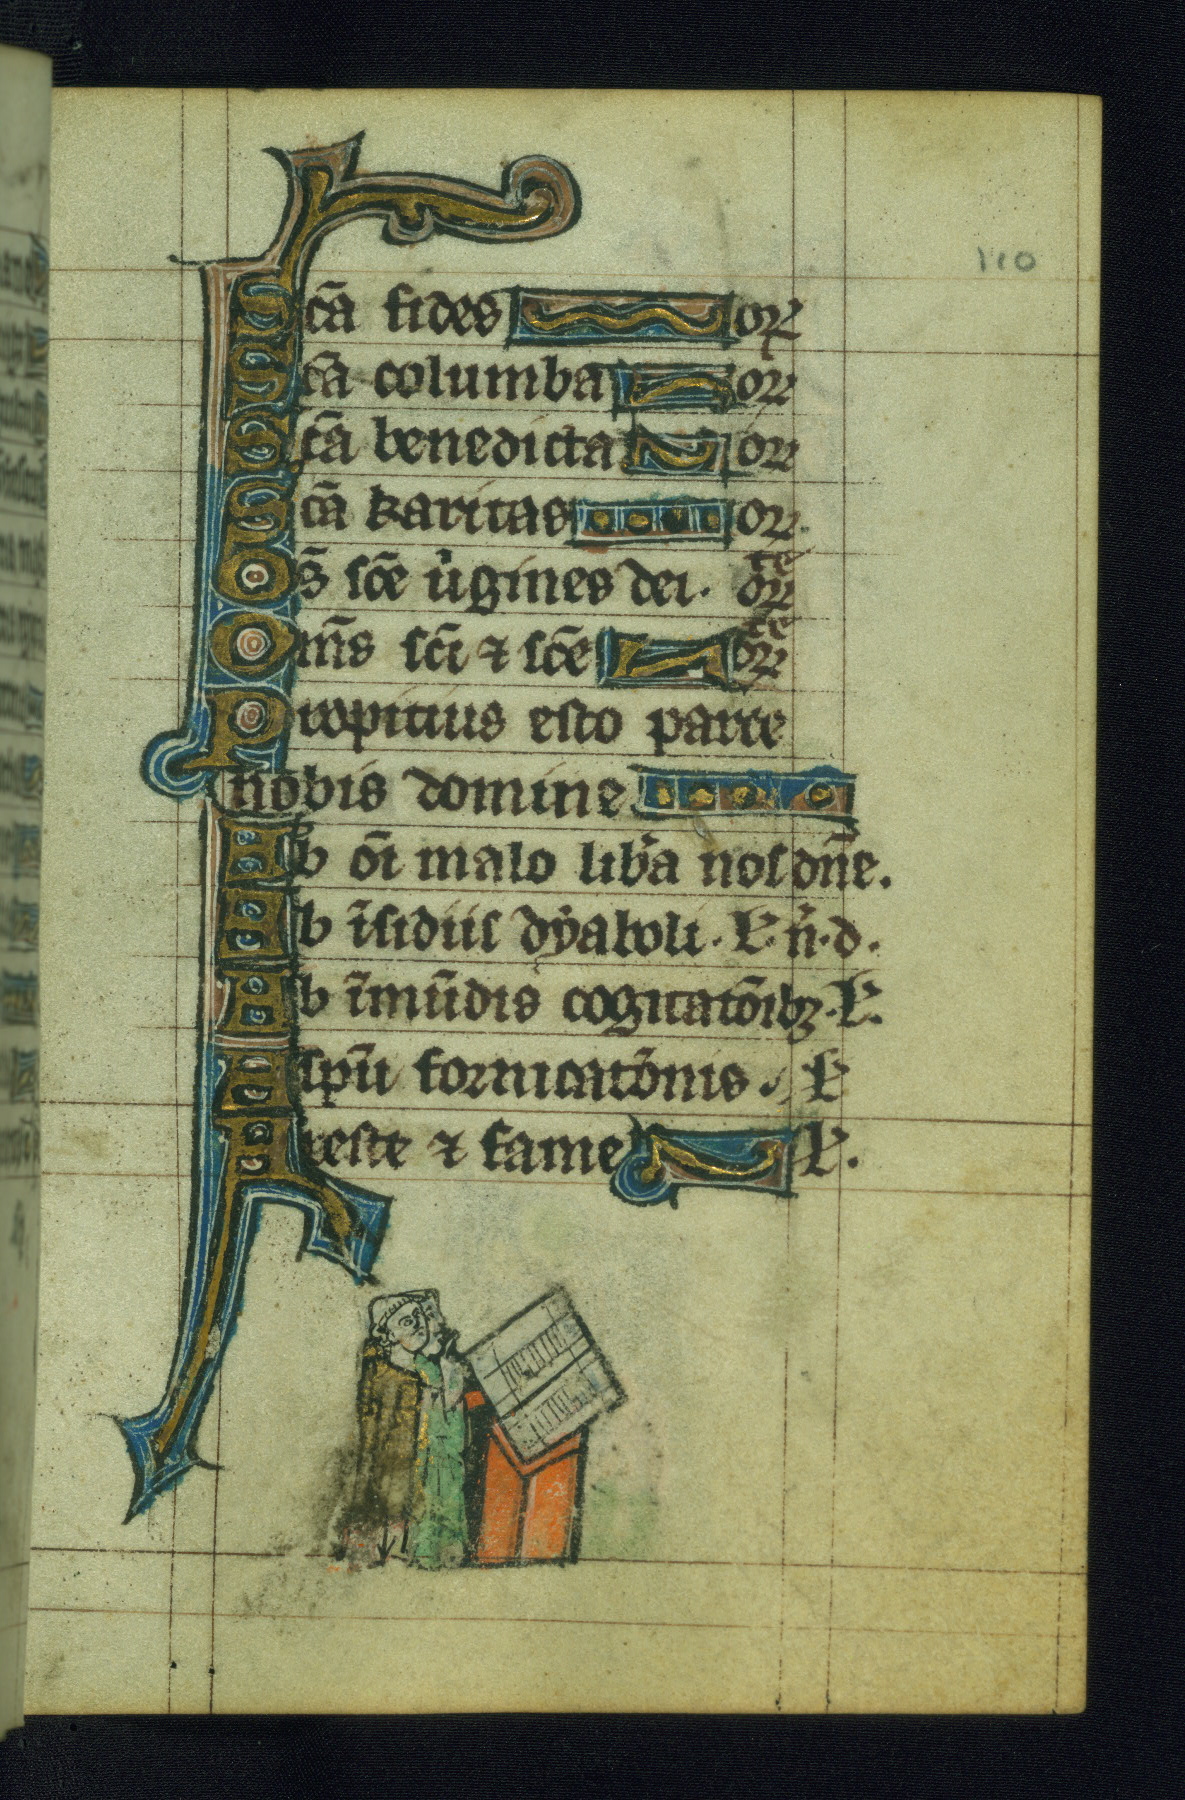 110
Sc̄a fides or
Sc̄a columba or
Sc̄a benedicta or
Sc̄a karitas or
Os̄ sc̄e v̓gines dei. orte
Om̄s sc̄i ⁊ sc̄e orte
Propicius esto parce
nobis domine
Ab oī malo lib̓a nos dn̄e.
Ab īsidiis dẏaboli. L. n̄. d.
Ab īmūdis cogitatōibꝫ. L.
A spū fornicatōnis. L
A peste ⁊ fame L.